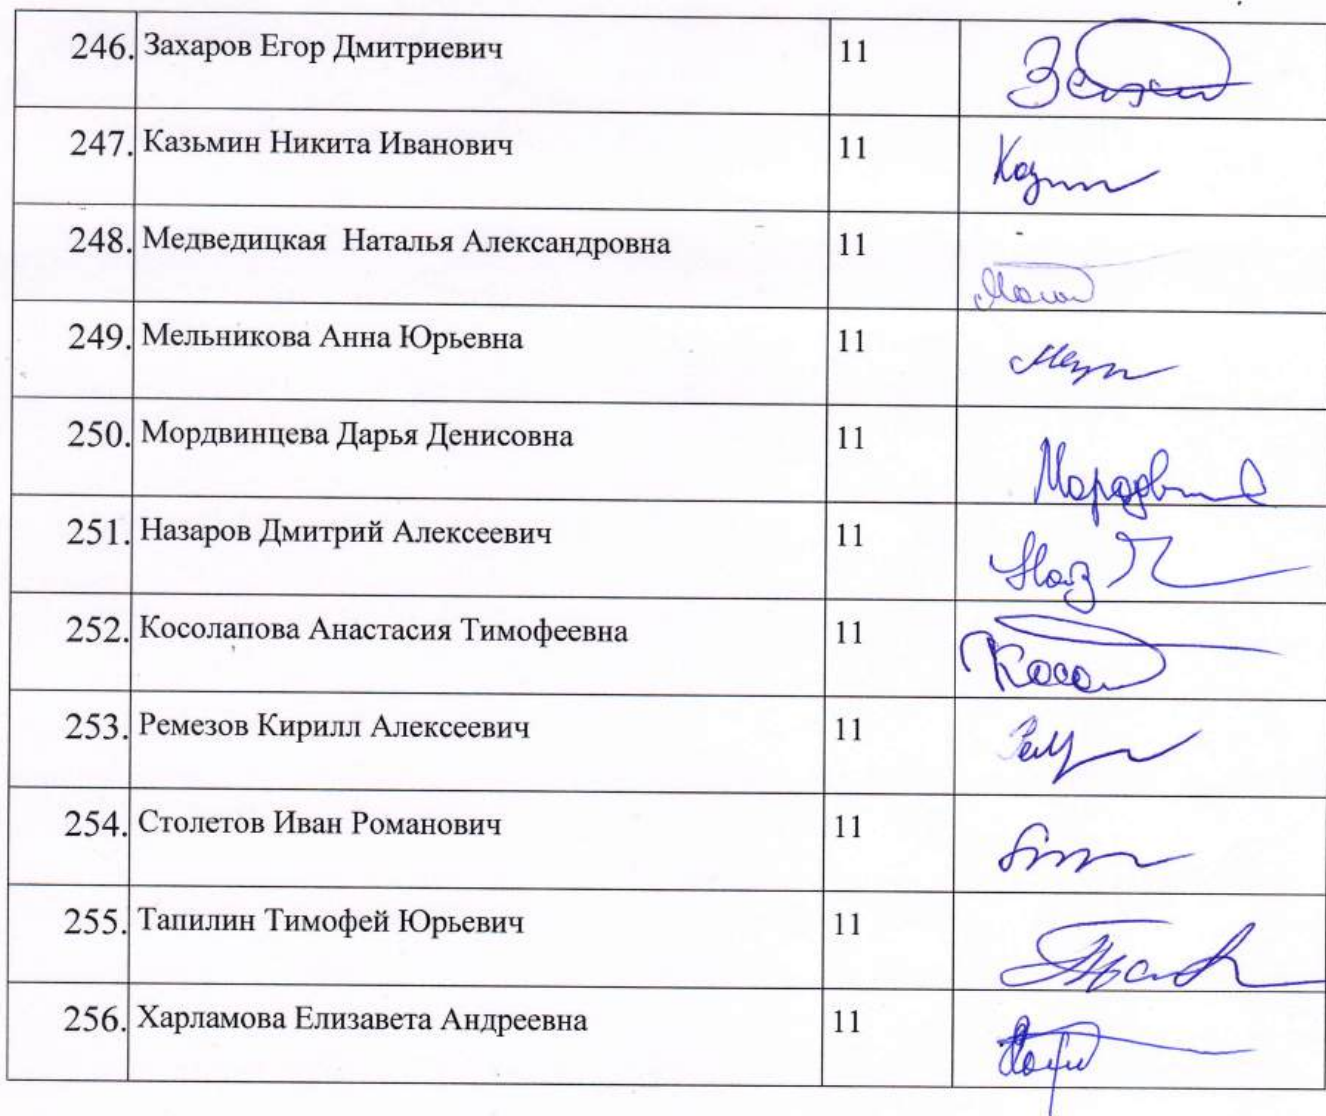 246. Захаров Егор Дмитриевич 11
247. Казьмин Никита Иванович 11
248. Медведицкая Наталья Александровна 11
249. Мельникова Анна Юрьевна 11
250. Мордвинцева Дарья Денисовна 11
251. Назаров Дмитрий Алексеевич 11
252. Косолапова Анастасия Тимофеевна 11
253. Ремезов Кирилл Алексеевич 11
254. Столетов Иван Романович 11
255. Тапилин Тимофей Юрьевич 11
256. Харламова Елизавета Андреевна 11